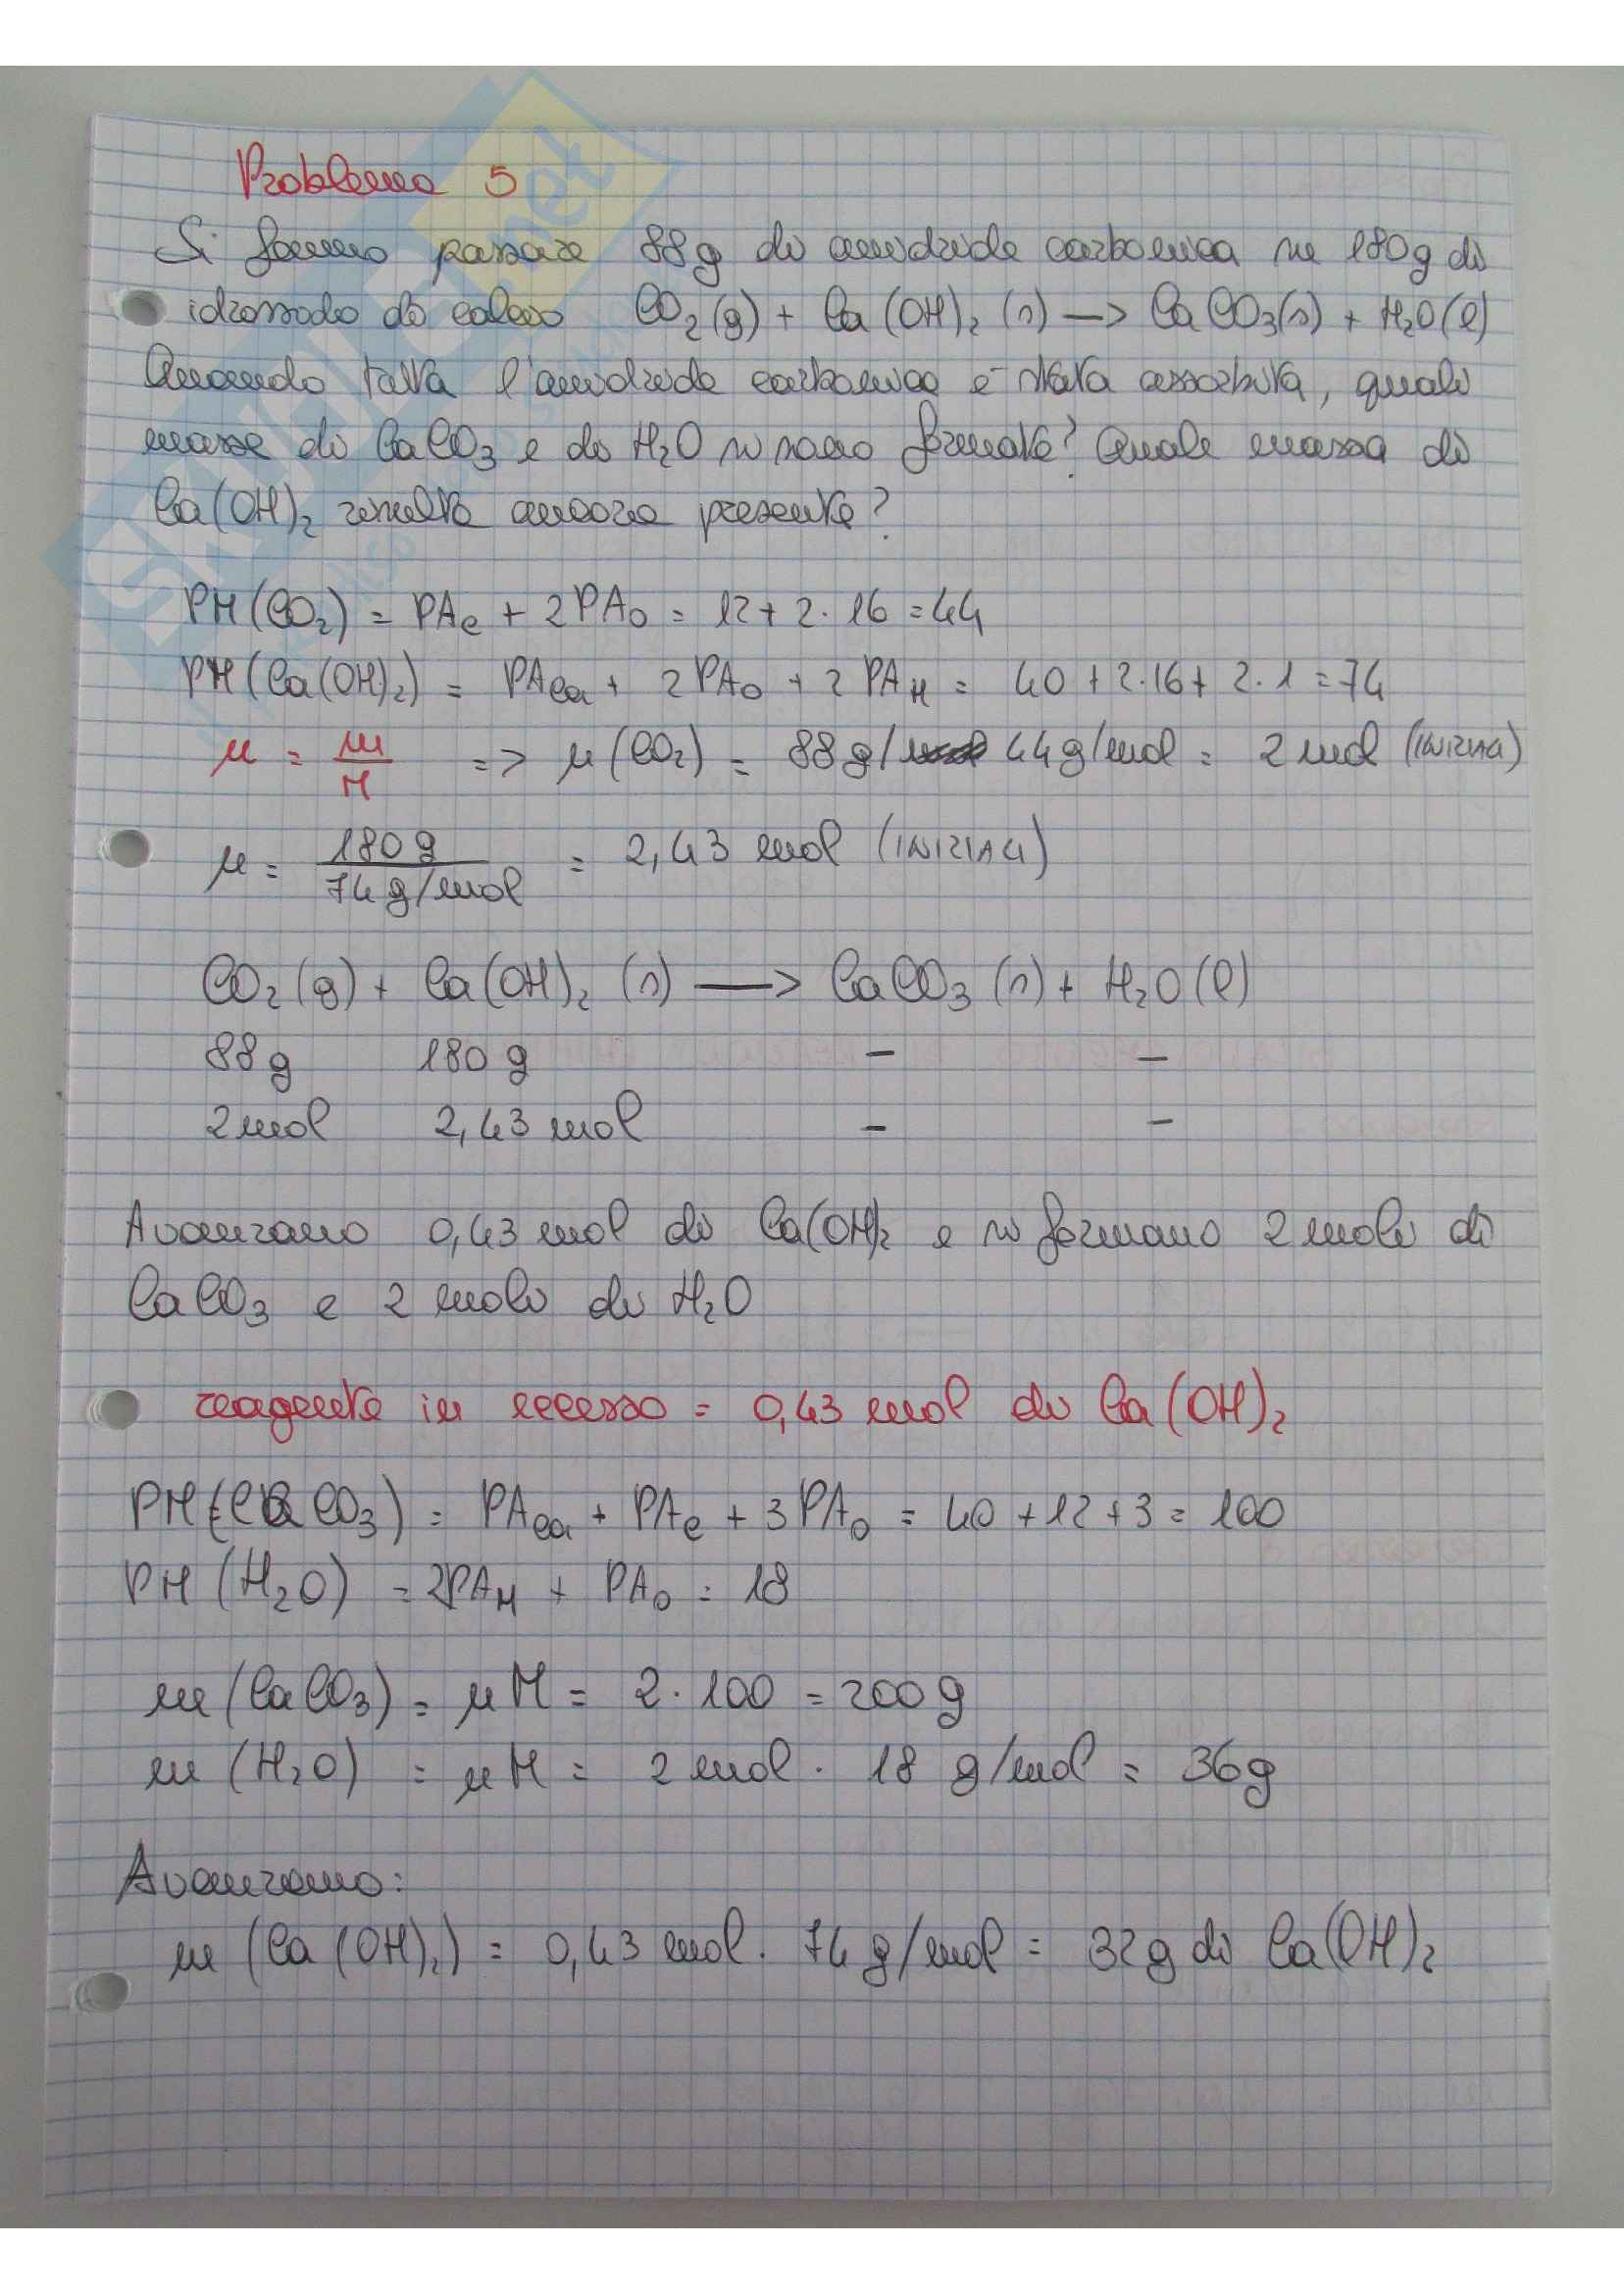 Problema 5
Si fanno passare 88g di anidride carbonica su 180g di
idrossido di calcio CO₂(g) + Ca(OH)₂ (s) —> CaCO₃(s) + H₂O(l)
Quando tutta l'anidride carbonica è stata assorbita, quali
masse di CaCO₃ e di H₂O si sono formate? Quale massa di
Ca(OH)₂ risulta ancora presente?
PM(CO₂) = PA_C + 2PA_O = 12 + 2·16 = 44
PM(Ca(OH)₂) = PA_Ca + 2PA_O + 2PA_H = 40 + 2·16 + 2·1 = 74
n = m/M => n(CO₂) = 88g/ 44g/mol = 2 mol (INIZIALI)
n = 180g / 74g/mol = 2,43 mol (INIZIALI)
CO₂(g) + Ca(OH)₂ (s) —> CaCO₃ (s) + H₂O(l)
88g 180g – –
2mol 2,43 mol – –
Avanzano 0,43 mol di Ca(OH)₂ e si formano 2 moli di
CaCO₃ e 2 moli di H₂O
reagente in eccesso = 0,43 mol di Ca(OH)₂
PM(CaCO₃) = PA_Ca + PA_C + 3PA_O = 40 + 12 + 3 = 100
PM(H₂O) = 2PA_H + PA_O = 18
m(CaCO₃) = nM = 2·100 = 200g
m(H₂O) = nM = 2 mol · 18 g/mol = 36g
Avanzano:
m(Ca(OH)₂) = 0,43 mol · 74g/mol = 32g di Ca(OH)₂